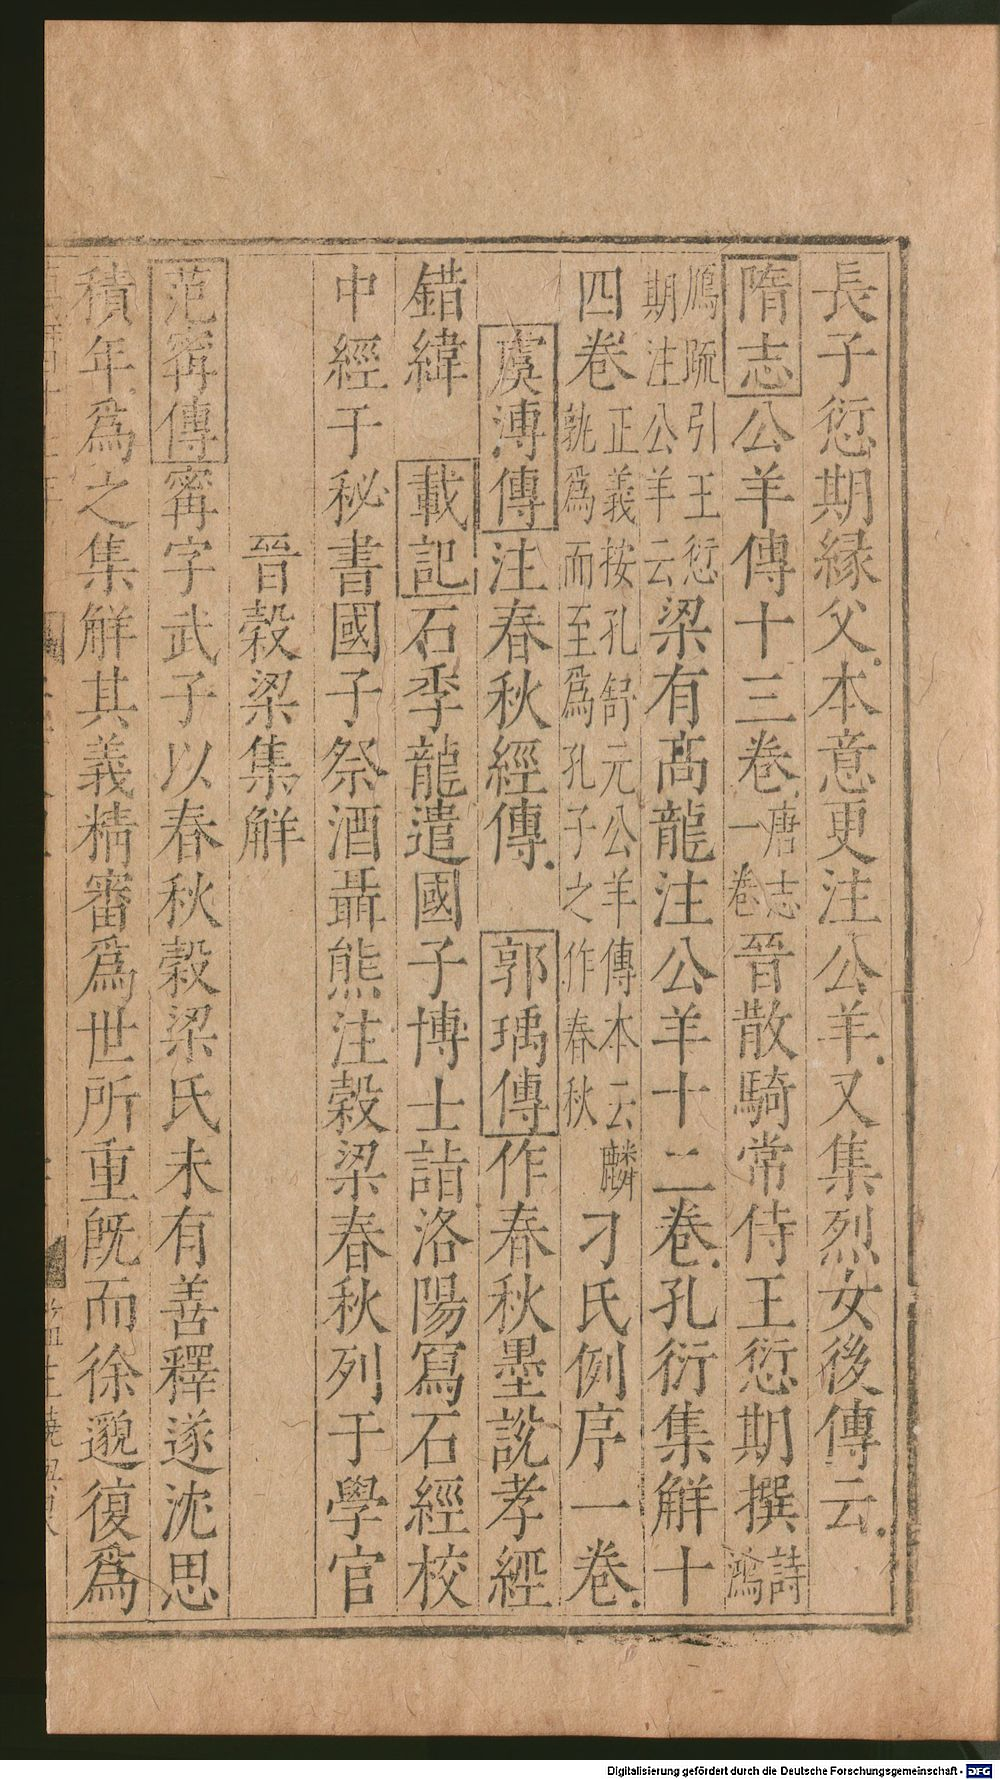 長子愆期縁父本意更注公羊又集烈女後傳云
隋志公羊傳十三卷唐志一卷晉散騎常侍王愆期撰詩鴻
鴈疏引王愆期注公羊云梁有髙龍注公羊十二卷孔衍集解十
四卷正義按孔舒元公羊傳本云麟孰爲而至爲孔子之作春秋刁氏例序一卷
虞溥傳注春秋經傳 郭瑀傳作春秋墨說孝經
錯緯 載記石季龍遣國子博士詣洛陽冩石經校
中經于秘書國子祭酒聶熊注穀梁春秋列于學官
晉穀梁集解
范甯傳甯字武子以春秋穀梁氏未有善釋遂沈思
積年爲之集解其義精審爲世所重旣而徐邈復爲
Digitalisierung gefördert durch die Deutsche Forschungsgemeinschaft - DFG